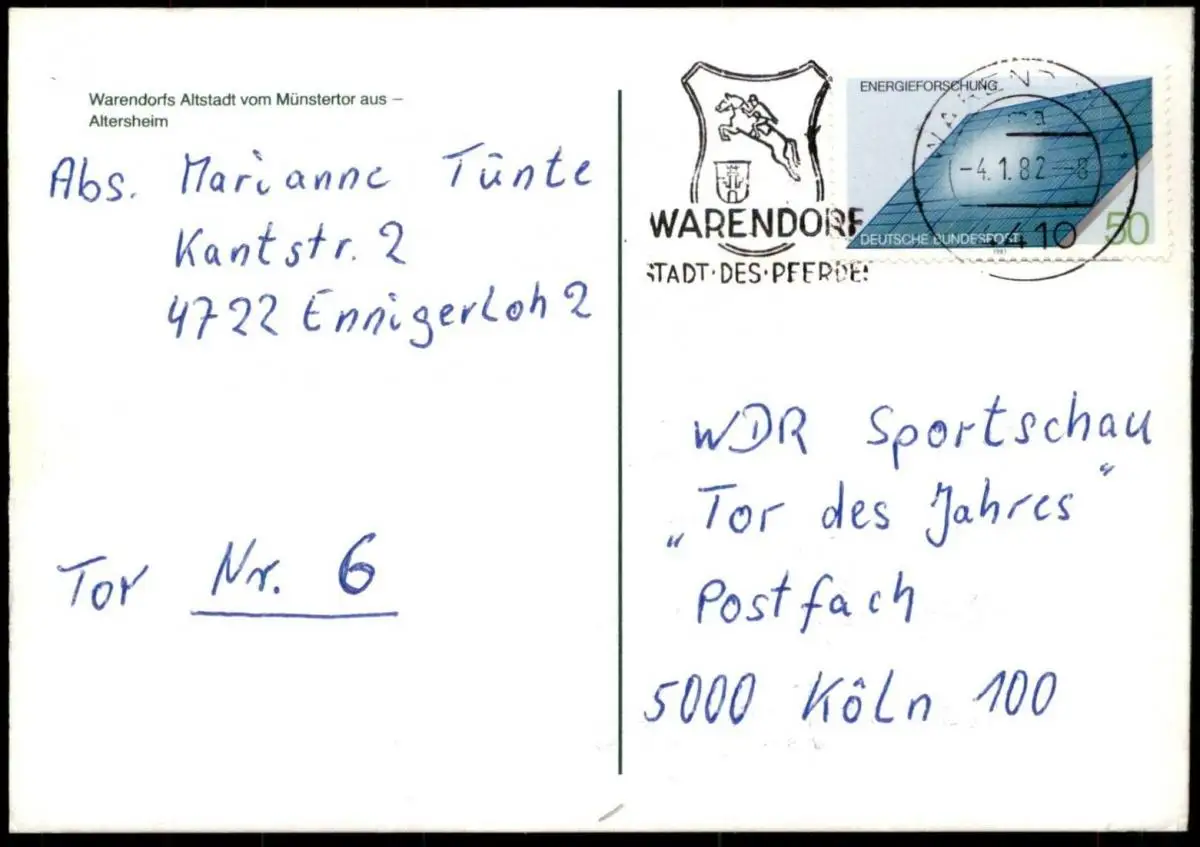 Warendorfs Altstadt vom Münstertor aus –
Altersheim
Abs. Marianne Tünte
Kantstr. 2
4722 Ennigerloh 2
Tor Nr. 6
WARENDORF
STADT·DES·PFERDES
ENERGIEFORSCHUNG
WARENDORF
-4.1.82-8
4410
DEUTSCHE BUNDESPOST
50
1981
WDR Sportschau
„Tor des Jahres“
Postfach
5000 Köln 100